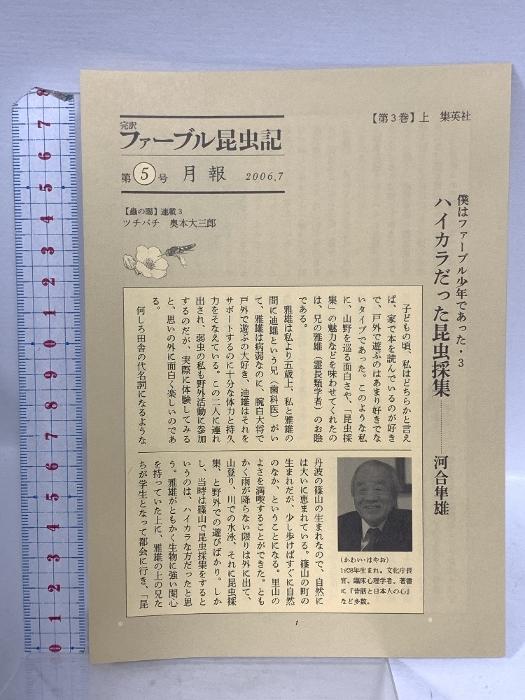 【第3巻】上　集英社
完訳
ファーブル昆虫記
第5号　月報　2006.7
【蟲の陽】連載3
ツチバチ　奥本大三郎
僕はファーブル少年であった・3
ハイカラだった昆虫採集
河合隼雄
子どもの頃、私はどちらかと言え
ば、家で本を読んでいるのが好き
で、戸外で遊ぶのはあまり好きでな
いタイプであった。このような私
に、山野を巡る面白さや、「昆虫採
集」の魅力などを味わせてくれたの
は、兄の雅雄（霊長類学者）のお陰
である。
雅雄は私より五歳上、私と雅雄の
間に迪雄という兄（歯科医）がい
て、雅雄は病弱なのに、腕白大将で
戸外で遊ぶの大好き、迪雄はそれを
サポートするのに十分な体力と持久
力をそなえている。この二人に連れ
出され、弱虫の私も野外活動に参加
するのだが、実際に体験してみる
と、思いの外に面白く楽しいのであ
る。
何しろ田舎の代名詞になるような
丹波の篠山の生まれなので、自然に
は大いに恵まれている。篠山の町の
生まれだが、少し歩けばすぐに自然
のなか、ということになる。里山の
よさを満喫することができた。とも
かく雨が降らない限りは外に出て、
山登り、川での水泳、それに昆虫採
集、と野外での遊びばかり。しか
し、当時は篠山で昆虫採集をすると
いうのは、ハイカラな方だったと思
う。雅雄がともかく生物に強い関心
を持っていた上に、雅雄の上の兄た
ちが学生となって都会に行き、「昆
（かわい・はやお）
1928年生まれ。文化庁長
官。臨床心理学者。著書
に『昔話と日本人の心』
など多数。
1
8
7
6
5
4
3
2
1
0
9
8
7
6
5
4
3
2
1
0